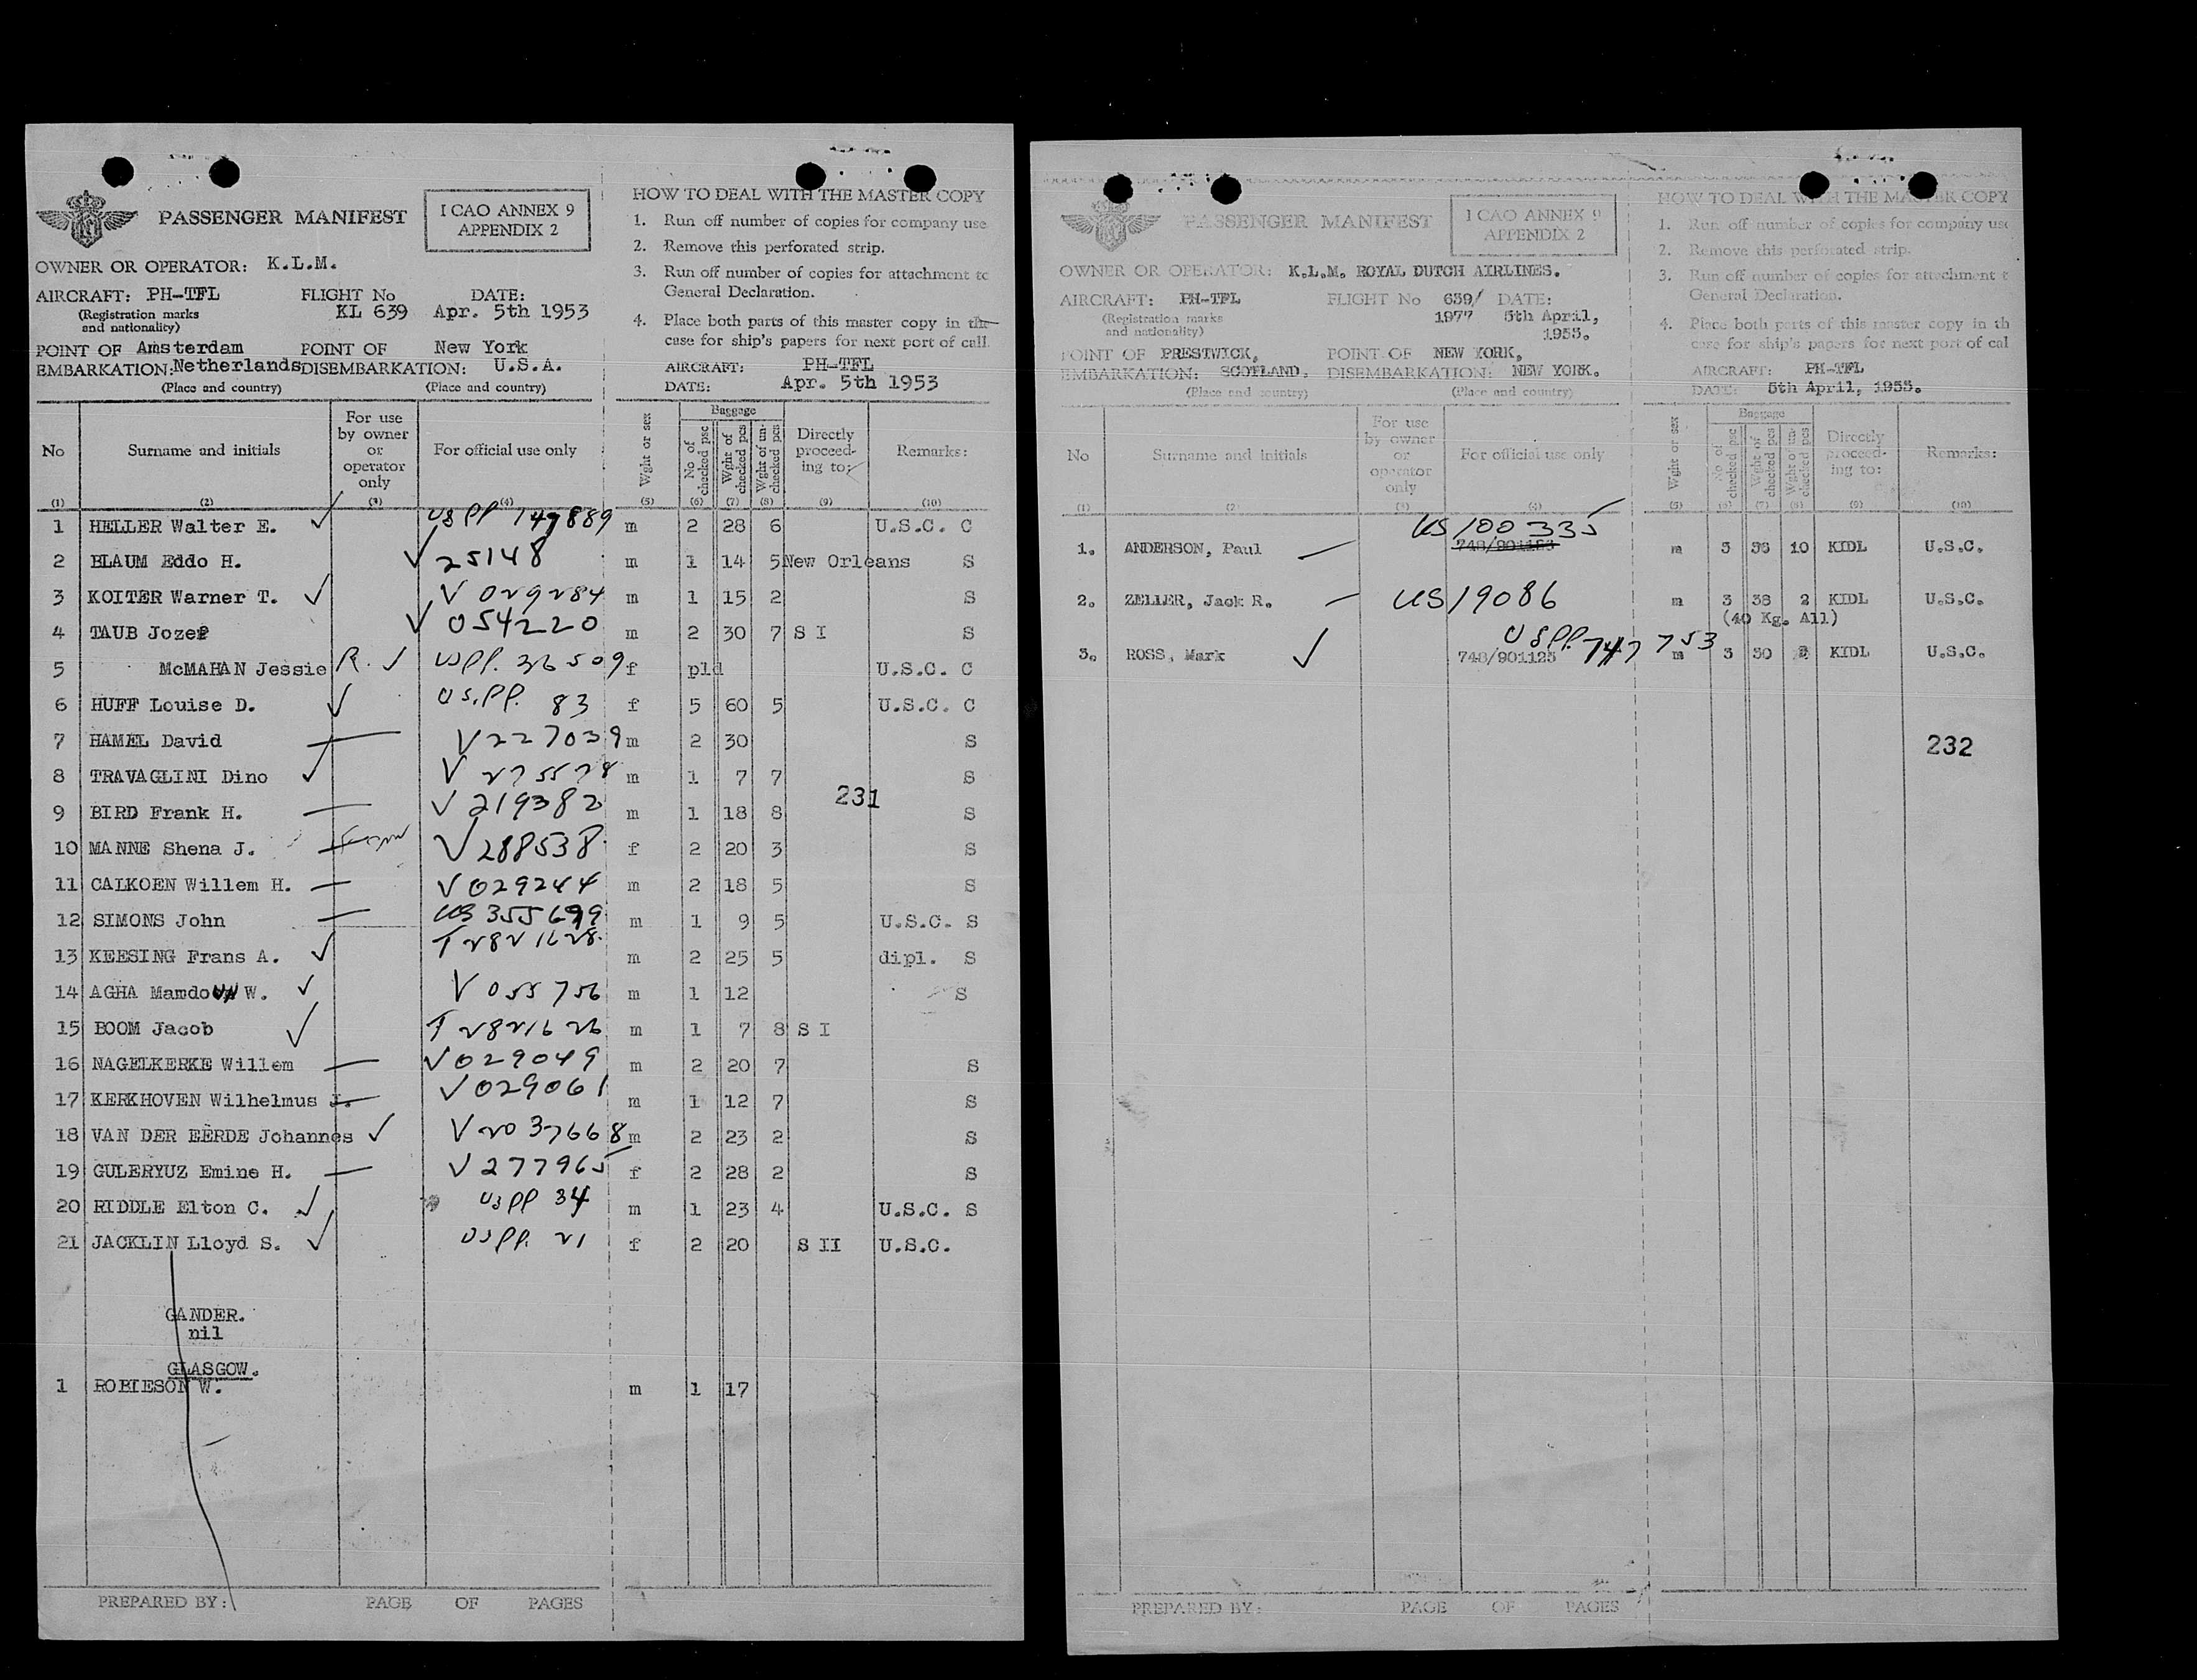 PASSENGER MANIFEST
I CAO ANNEX 9
APPENDIX 2
OWNER OR OPERATOR: K.L.M.
AIRCRAFT: PH-TFL FLIGHT No DATE:
(Registration marks KL 639 Apr. 5th 1953
and nationality)
POINT OF Amsterdam POINT OF New York
EMBARKATION: Netherlands DISEMBARKATION: U.S.A.
(Place and country) (Place and country)
HOW TO DEAL WITH THE MASTER COPY
1. Run off number of copies for company use
2. Remove this perforated strip.
3. Run off number of copies for attachment to
General Declaration.
4. Place both parts of this master copy in the
case for ship's papers for next port of call.
AIRCRAFT: PH-TFL
DATE: Apr. 5th 1953
No Surname and initials For use by owner or operator only For official use only Wght or sex Baggage No of checked psc Wght of checked pcs Wght of un-checked pcs Directly proceed-ing to: Remarks:
(1) (2) (3) (4) (5) (6) (7) (8) (9) (10)
1 HELLER Walter E. US PP 147889 m 2 28 6 U.S.C. C
2 BLAUM Eddo H. V 25148 m 1 14 5 New Orleans S
3 KOITER Warner T. V 029284 m 1 15 2 S
4 TAUB Jozef V 054220 m 2 30 7 S I S
5 McMAHAN Jessie R. USPP. 36509 f pld U.S.C. C
6 HUFF Louise D. US.PP. 83 f 5 60 5 U.S.C. C
7 HAMEL David V227039 m 2 30 S
8 TRAVAGLINI Dino V 275578 m 1 7 7 S
231
9 BIRD Frank H. V 219382 m 1 18 8 S
10 MANNE Shena J. V288538 f 2 20 3 S
11 CALKOEN Willem H. V029244 m 2 18 5 S
12 SIMONS John US 355699 m 1 9 5 U.S.C. S
13 KEESING Frans A. T 2821628 m 2 25 5 dipl. S
14 AGHA Mamdouh W. V 055756 m 1 12 S
15 BOOM Jacob T 2821626 m 1 7 8 S I
16 NAGELKERKE Willem V029049 m 2 20 7 S
17 KERKHOVEN Wilhelmus J. V029061 m 1 12 7 S
18 VAN DER EERDE Johannes V 2037668 m 2 23 2 S
19 GULERYUZ Emine H. V277965 f 2 28 2 S
20 RIDDLE Elton C. US PP 34 m 1 23 4 U.S.C. S
21 JACKLIN Lloyd S. USPP. 21 f 2 20 S II U.S.C.
GANDER.
nil
GLASGOW.
1 ROBIESON W. m 1 17
PREPARED BY: PAGE OF PAGES
PASSENGER MANIFEST
I CAO ANNEX 9
APPENDIX 2
OWNER OR OPERATOR: K.L.M. ROYAL DUTCH AIRLINES.
AIRCRAFT: PH-TFL FLIGHT No 639/ DATE:
(Registration marks 1977 5th April,
and nationality) 1953.
POINT OF PRESTWICK, POINT OF NEW YORK,
EMBARKATION: SCOTLAND. DISEMBARKATION: NEW YORK.
(Place and country) (Place and country)
HOW TO DEAL WITH THE MASTER COPY
1. Run off number of copies for company use
2. Remove this perforated strip.
3. Run off number of copies for attachment t
General Declaration.
4. Place both parts of this master copy in th
case for ship's papers for next port of cal
AIRCRAFT: PH-TFL
DATE: 5th April, 1953.
No Surname and initials For use by owner or operator only For official use only Wght or sex Baggage No of checked psc Wght of checked pcs Wght of un-checked pcs Directly proceed-ing to: Remarks:
(1) (2) (3) (4) (5) (6) (7) (8) (9) (10)
US 100335
1. ANDERSON, Paul 748/901123 m 3 38 10 KIDL U.S.C.
2. ZELLER, Jack R. US 19086 m 3 38 2 KIDL U.S.C.
(40 Kg. All)
USPP. 747753
3. ROSS, Mark 748/901125 m 3 30 2 KIDL U.S.C.
232
PREPARED BY: PAGE OF PAGES